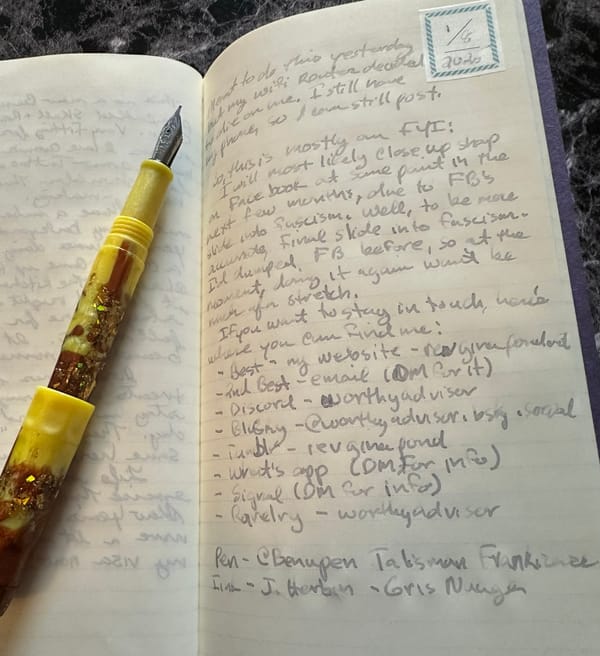 1/8
2020
Meant to do this yesterday
but my WiFi Router decided
to die on me. I still have
my phone, so I can still post.
So, this is mostly an FYI:
I will most likely close up shop
on Facebook at some point in the
next few months, due to FB's
slide into fascism. Well, to be more
accurate, final slide into fascism.
I'd dumped FB before, so at the
moment, doing it again won't be
much of a stretch.
If you want to stay in touch, here's
where you can find me:
- Best - my website - revginapond
- 2nd Best - email (DM for it)
- Discord - worthyadvisor
- BlueSky - @worthyadvisor.bsky.social
- Tumblr - revginapond
- What's app (DM for info)
- Signal (DM for info)
- Ravelry - worthyadvisor
Pen - @Benupen Talisman Frankincense
Ink - J. Herbin - Gris Nuage